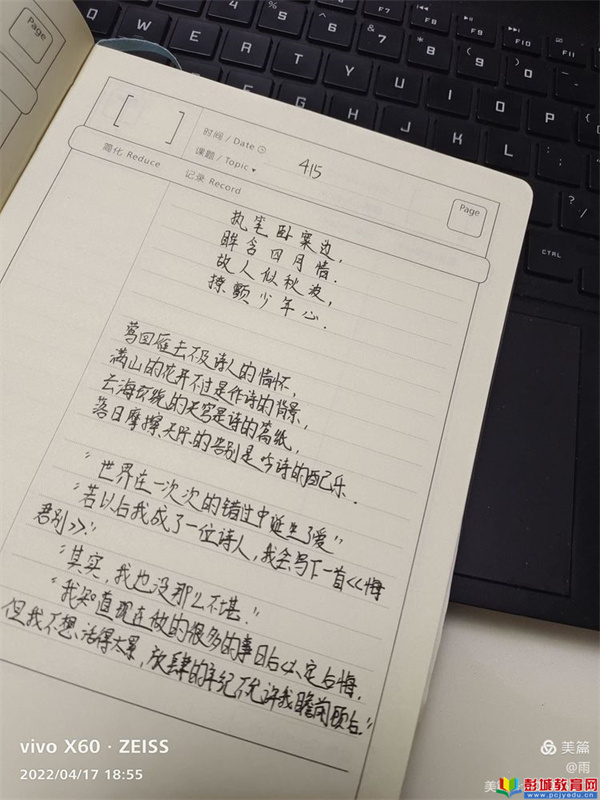 Page
[ ]
时间 / Date
课题 / Topic
415
Page
简化 Reduce
记录 Record
执笔卧案边,
眸含四月情.
故人似秋波,
撩颤少年心.
莺回雁去不及诗人的情怀,
满山的花开不过是作诗的背景,
云海缤纷的天空是诗的高纸,
落日摩擦天际的告别是吟诗的配乐.
“世界在一次次的错过中诞生了爱”
“若以后我成了一位诗人,我会写下一首<<悔
君别>>.”
“其实,我也没那么不堪.”
“我知道现在做的很多的事日后一定后悔,
但我不想活得太累,放肆的年纪不允许我瞻前顾后.”
Q W E R T Y U I O P
F G H J K L
CTRL
vivo X60 · ZEISS
2022/04/17 18:55
美篇
@雨
美
彭城教育网
www.pcjyedu.cn